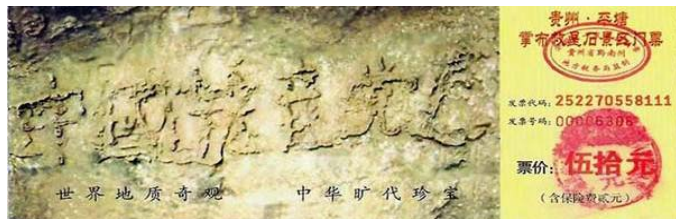 中國共産党
世界地质奇观 中华旷代珍宝
贵州·平塘
掌布救星石景区门票
贵州省黔南州
地方税务局监制
发票代码: 252270558111
发票号码: 00006306
票价: 伍拾元
(含保险费贰元)